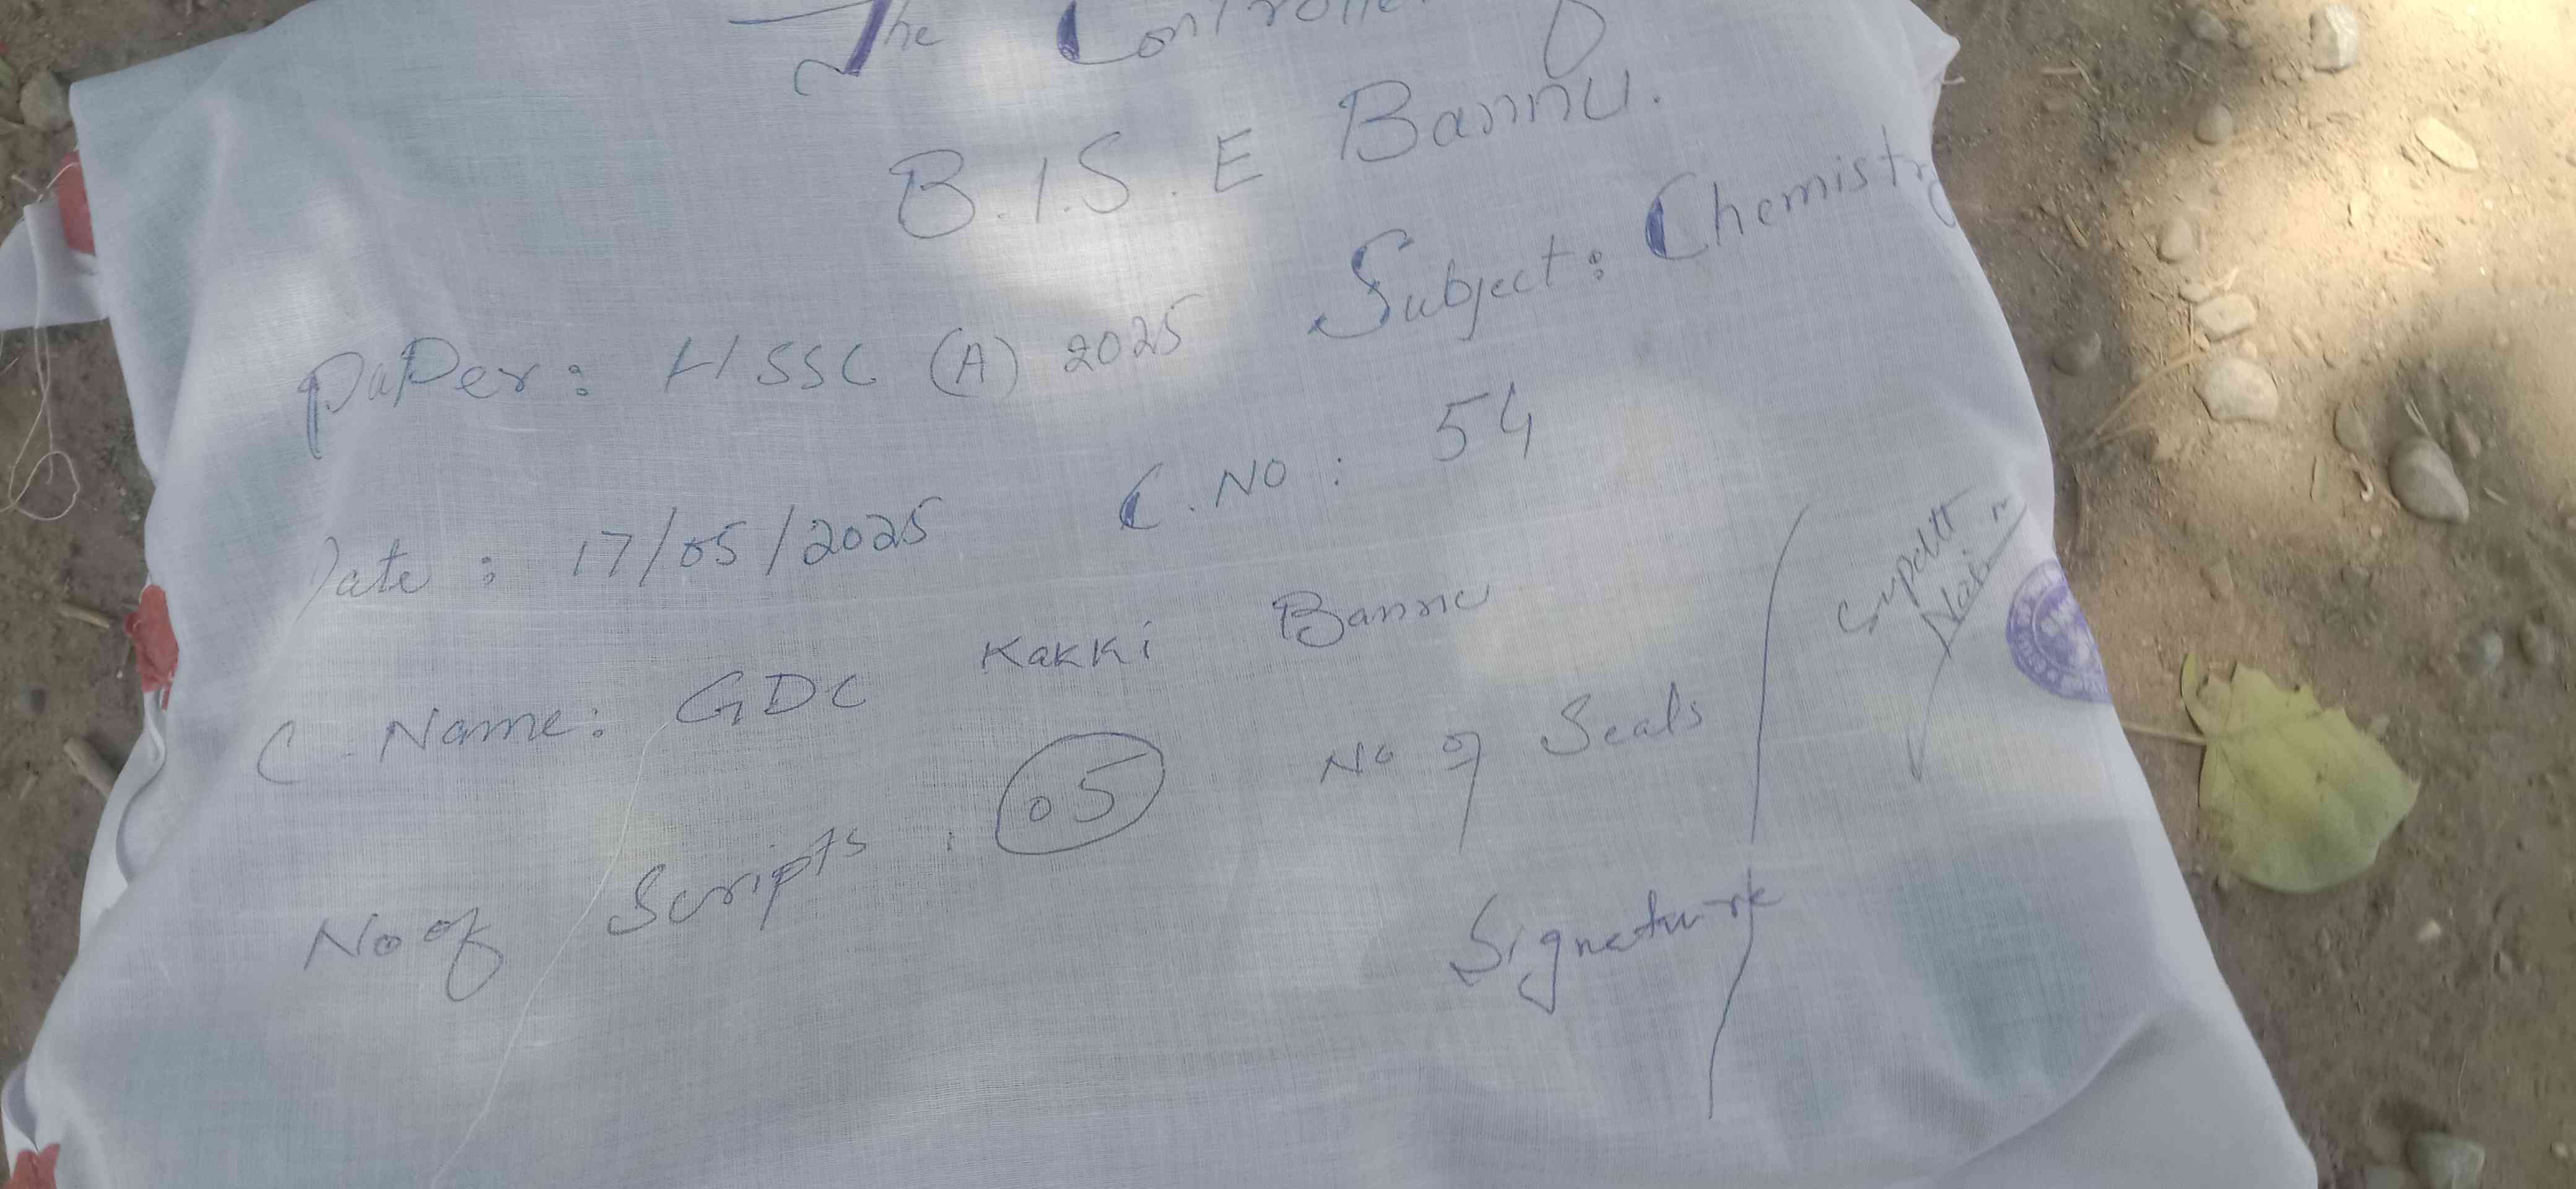 The Controller of
B.I.S.E Bannu.
Paper: HSSC (A) 2025 Subject: Chemistry
Date: 17/05/2025 C.NO: 54
C.Name: GDC Kakki Bannu
No of Scripts: 05 No of Seals
Signature